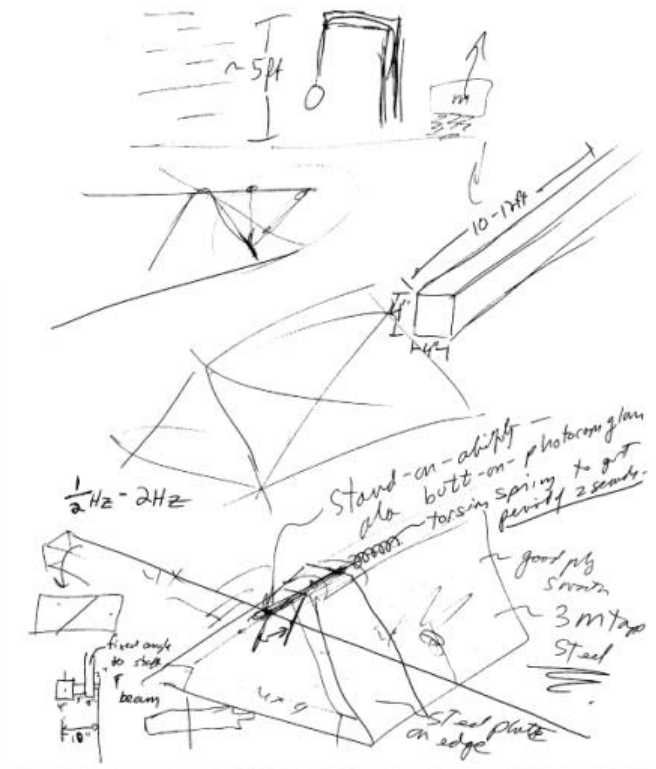 ~ 5ft
m
10-12ft
4"
4"
1/2 Hz - 2Hz
Stand-on-ability -
ala butt-on-photocopy glass
torsion spring to get
period 2 seconds.
good ply
smooth
~ 3m tape
Steel
4x
fixed angle
to shaft
& beam
10"
4x9
steel plate
on edge